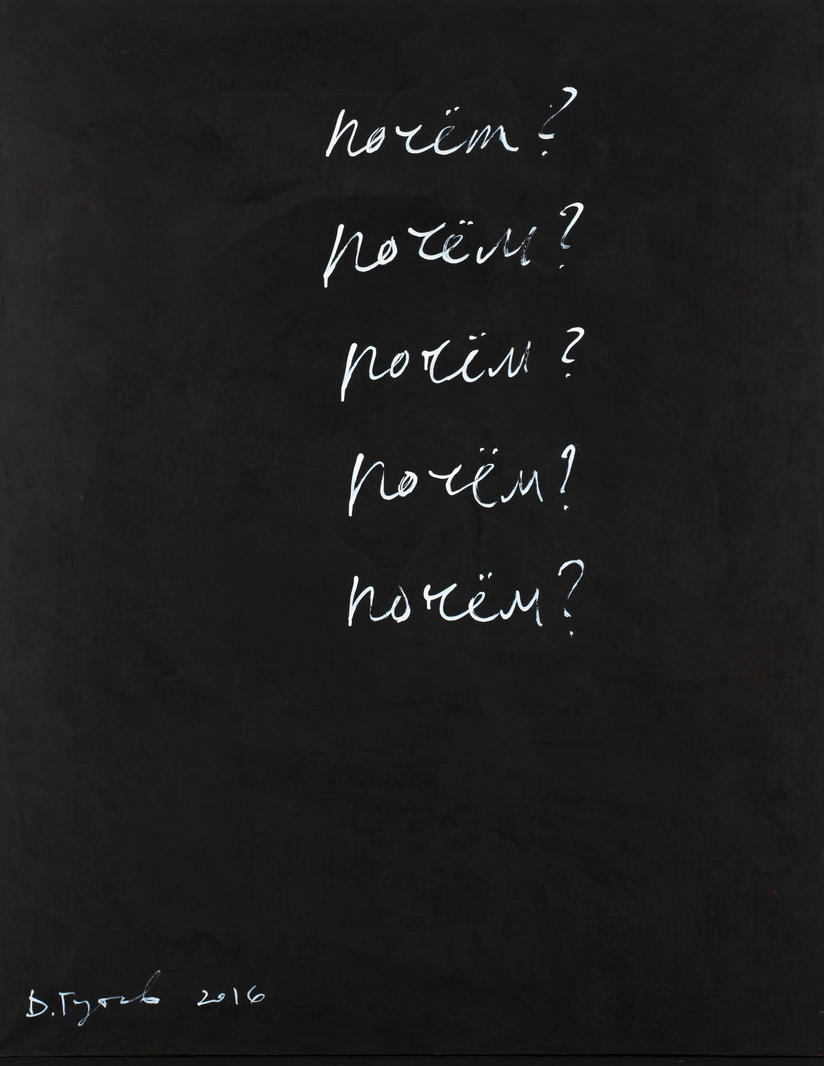 почём?
почём?
почём?
почём?
почём?
Д. Гутов 2016